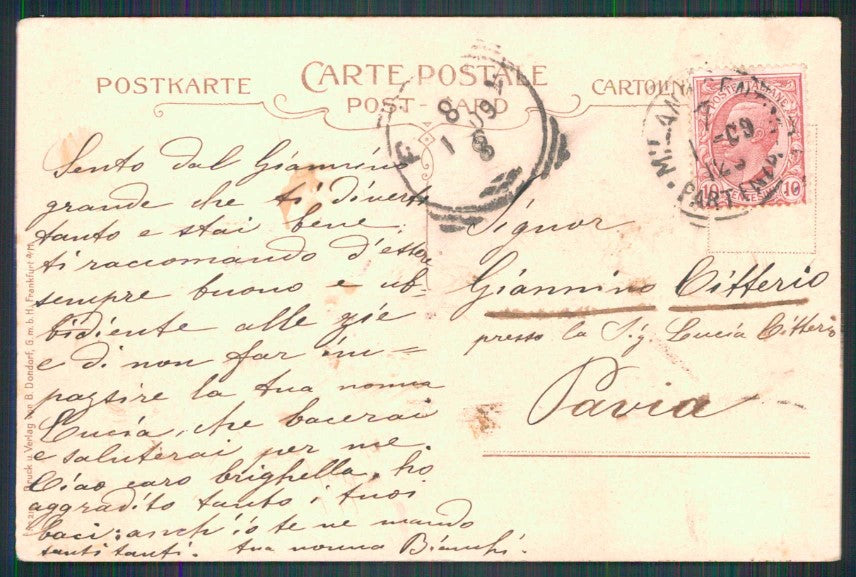 POSTKARTE CARTE POSTALE CARTOLINA
POST-CARD
Sento dal Giannino
grande che ti diverti
tanto e stai bene;
ti raccomando d'essere
sempre buono e ub-
bidiente alle zie
e di non far im-
pazsire la tua nonna
Lucia, che bacerai
e saluterai per me.
Ciao caro brighella, ho
aggradito tanto i tuoi
baci: anch'io te ne mando
tanti tanti. tua nonna Bianchi.
Signor
Giannino Citterio
presso la Sig. Lucia Citterio
Pavia
POSTE ITALIANE
10 10
MILANO
PARTENZA
8
1 09
8
Druck u. Verlag von B. Dondorf, G.m.b.H. Frankfurt a/M.